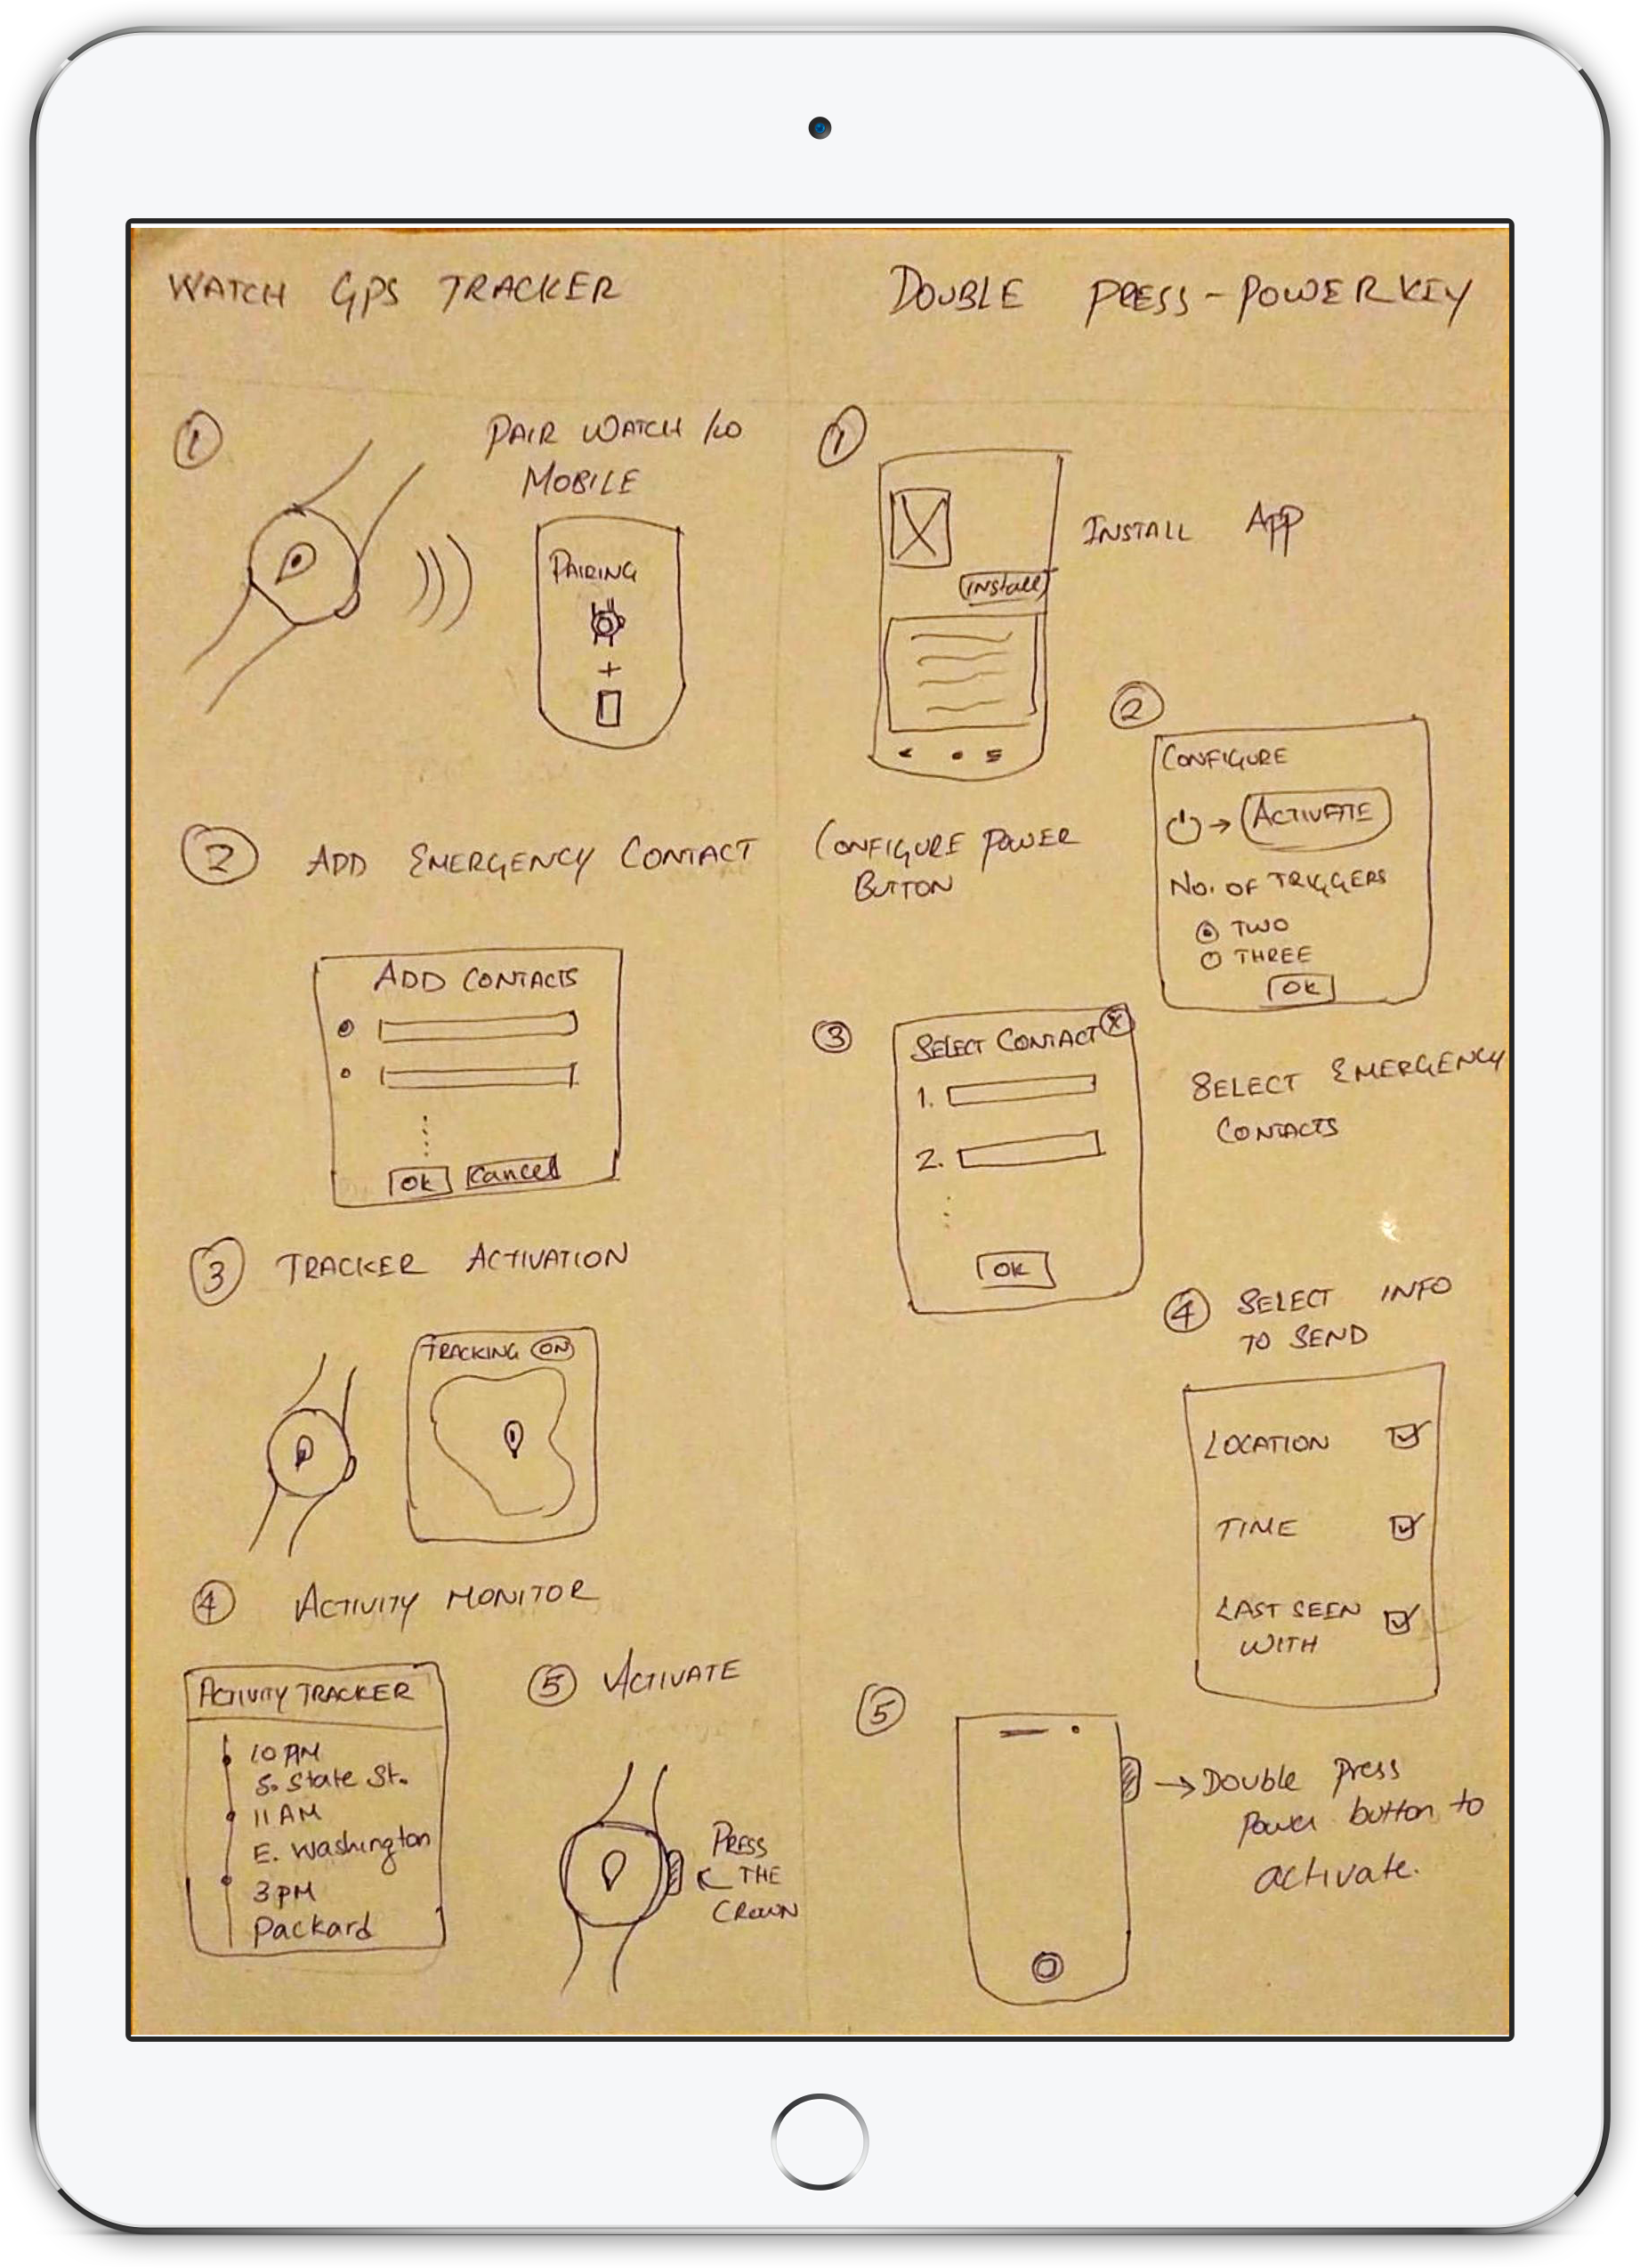 WATCH GPS TRACKER
1
PAIR WATCH /W
MOBILE
PAIRING
+
2 ADD EMERGENCY CONTACT
ADD CONTACTS
OK Cancel
3 TRACKER ACTIVATION
TRACKING ON
4 ACTIVITY MONITOR
ACTIVITY TRACKER
10 AM
S. State St.
11 AM
E. Washington
3 PM
Packard
5 ACTIVATE
PRESS
THE
CROWN
DOUBLE PRESS-POWER KEY
1
INSTALL APP
install
2
CONFIGURE POWER
BUTTON
CONFIGURE
→ ACTIVATE
NO. OF TRIGGERS
TWO
THREE
OK
3
SELECT CONTACT X
1.
2.
OK
SELECT EMERGENCY
CONTACTS
4 SELECT INFO
TO SEND
LOCATION
TIME
LAST SEEN
WITH
5
→ Double Press
Power button to
activate.